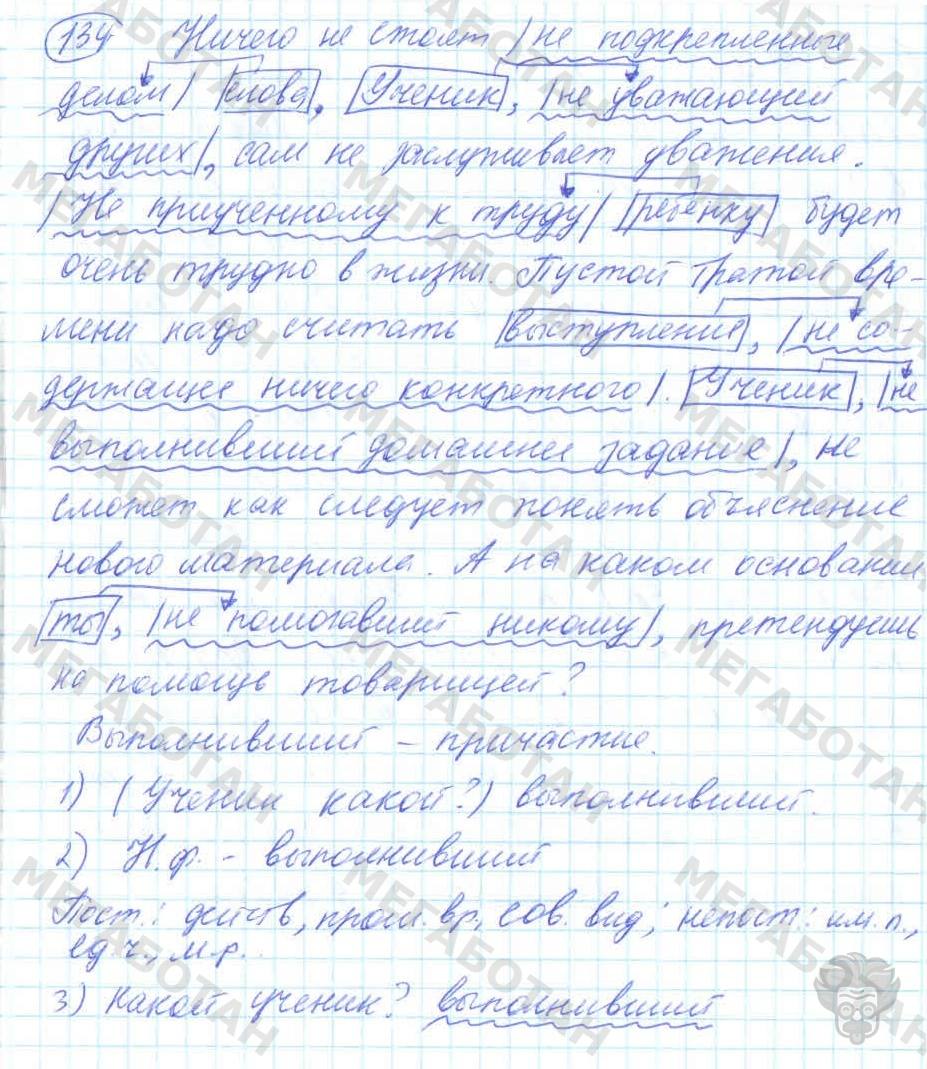 134 Ничего не стоят |не подкрепленные
делом| слова, Ученик, |не уважающий
других|, сам не заслуживает уважения.
|Не приученному к труду| ребенку будет
очень трудно в жизни. Пустой тратой вре-
мени надо считать выступления, |не со-
держащие ничего конкретного|. Ученик, |не
выполнивший домашнее задание|, не
сможет как следует понять объяснение
нового материала. А на каком основании
ты, |не помогавший никому|, претендуешь
на помощь товарищей?
Выполнивший – причастие.
1) (Ученик какой?) выполнивший.
2) Н.ф. - выполнивший
Пост.: действ, прош. вр., сов. вид; непост: им. п.,
ед. ч., м.р.
3) Какой ученик? выполнивший
МЕГАБОТАН